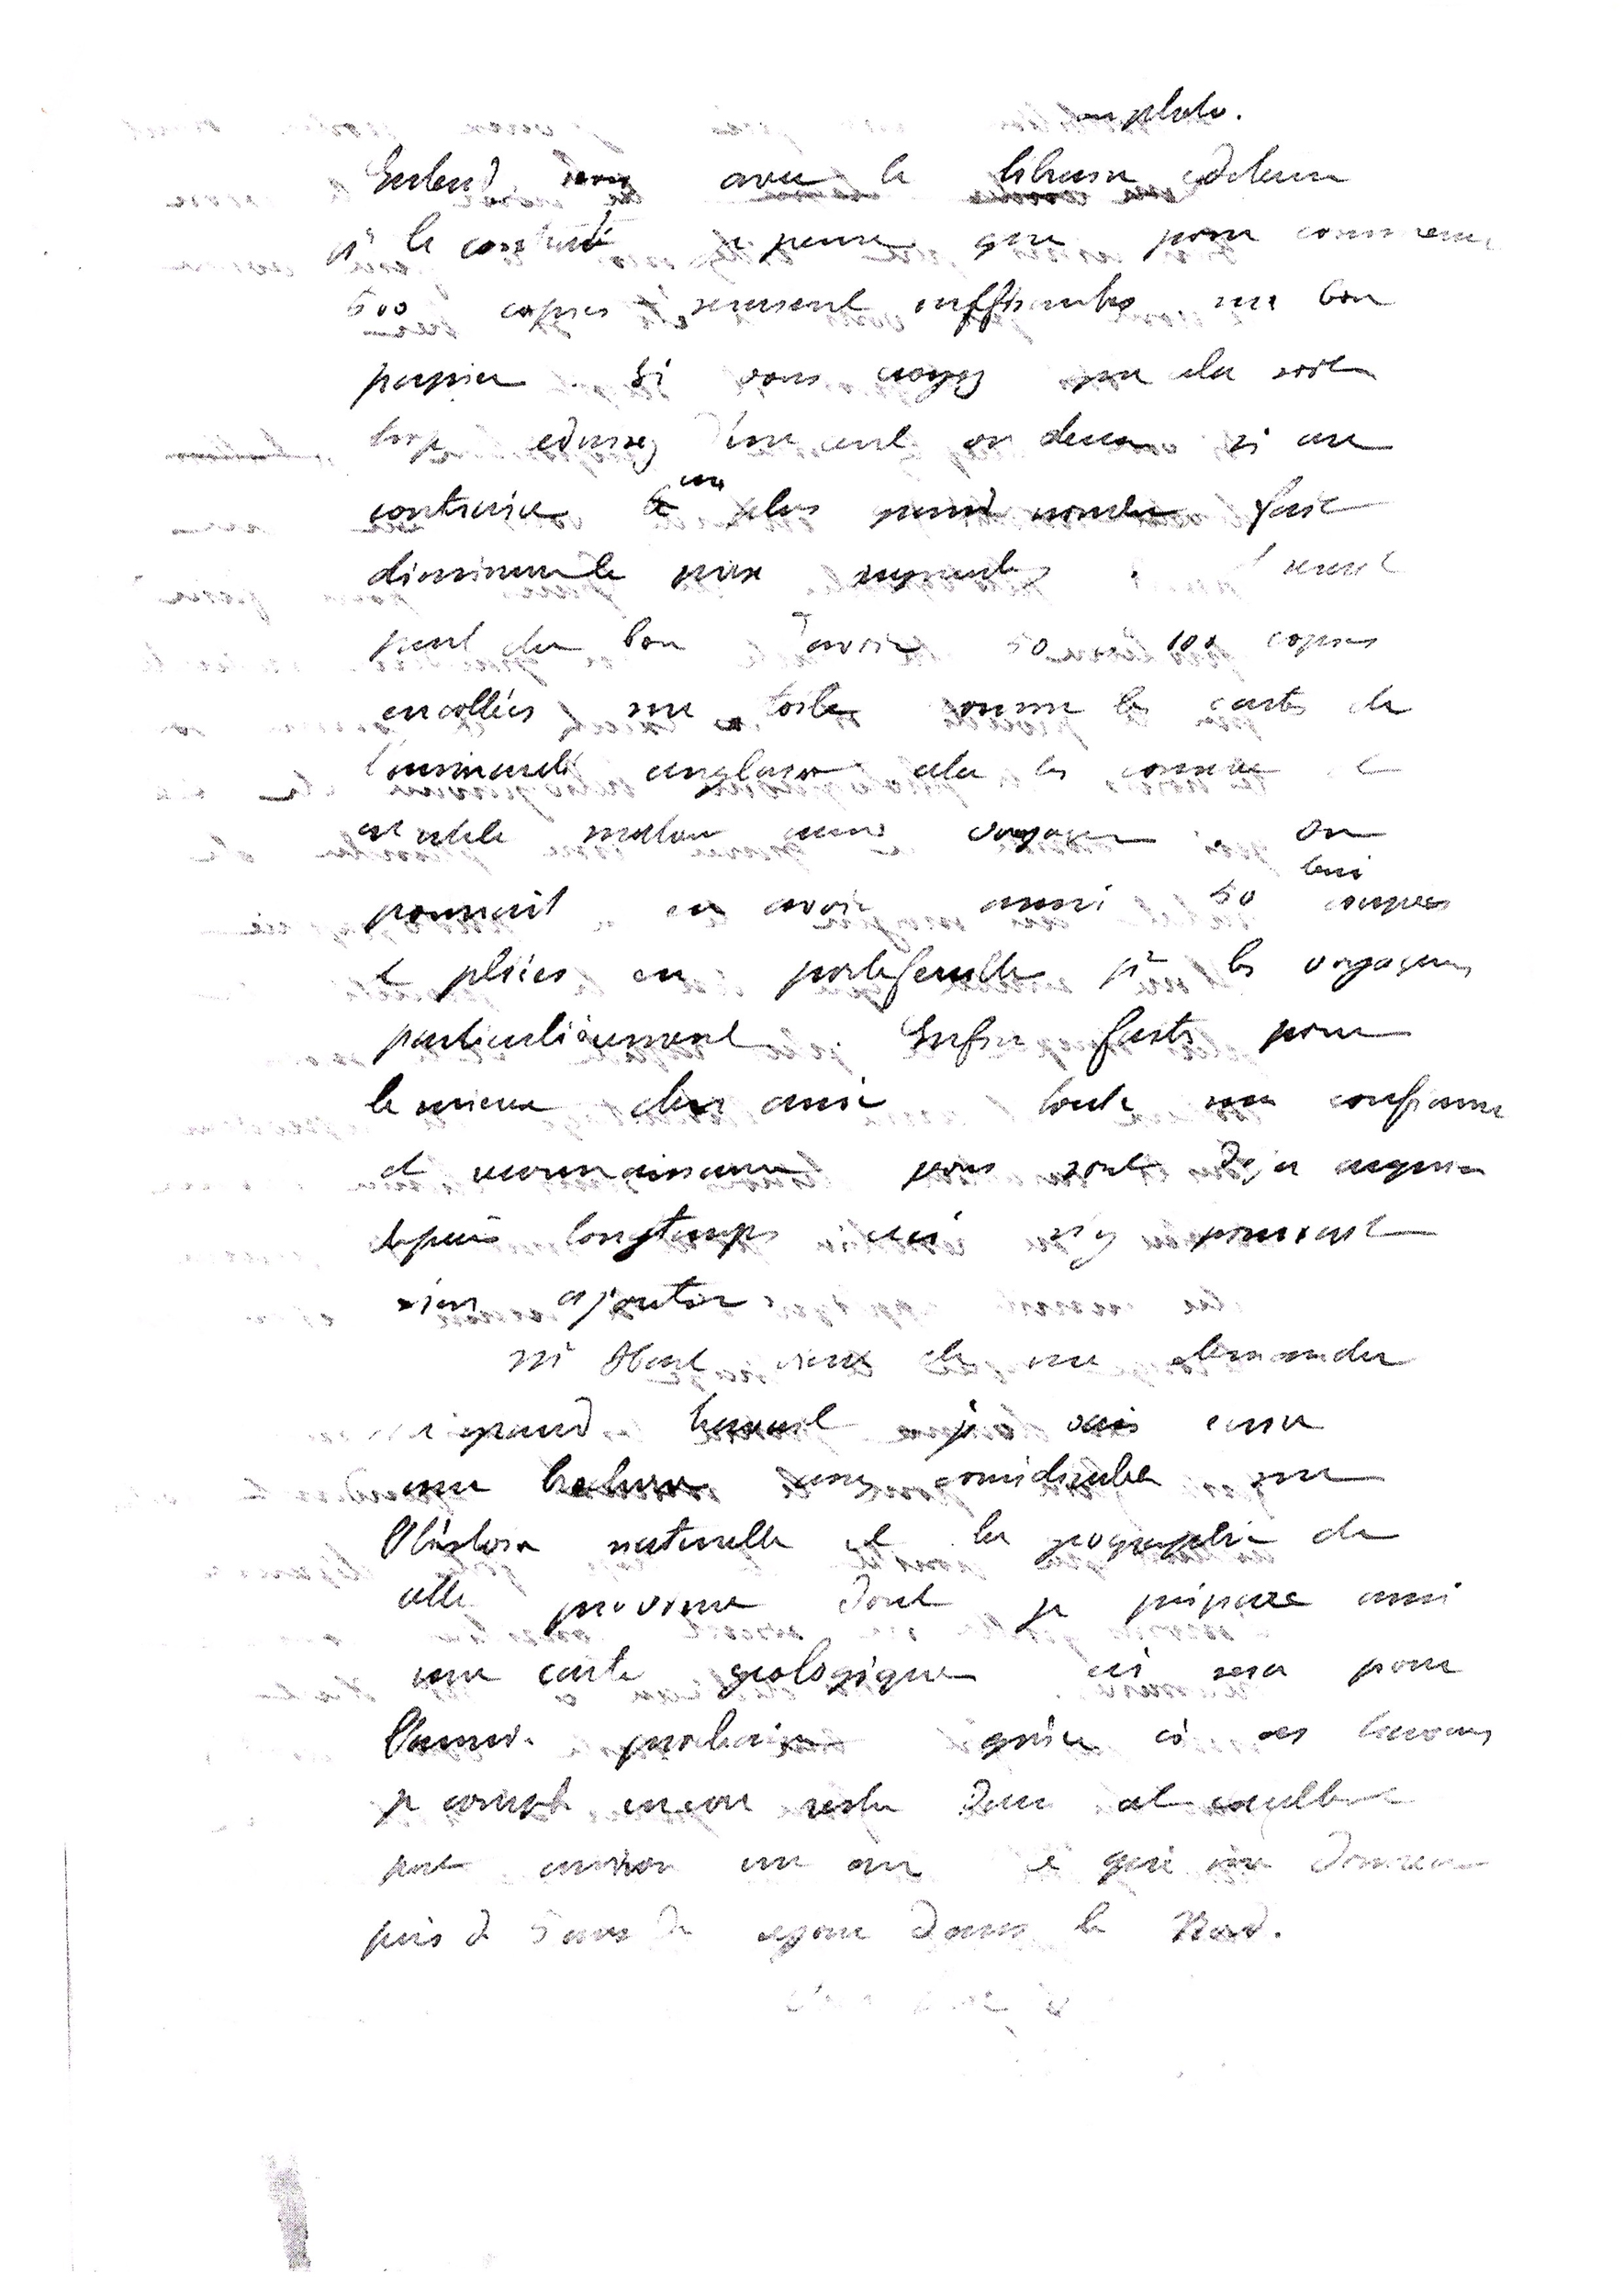 ou photo.
Entend vous avec le libraire éditeur
pr la quantité je pense que pour commencer
500 copies seraient suffisantes sur bon
papier Si vous croyez que cela soit
trop réduisez d'un cent ou deux si au
contraire un plus grand nombre fait
diminuer le prix augmentez . Il serait
peut etre bon d'avoir 50 à 100 copies
encollées sur toile comme les cartes de
l'amirauté anglaise cela les conserve et
est utile surtout aux voyageurs . on
pourrait en avoir aussi 50 coupées
et pliées en portefeuille pr les voyageurs
particulièrement . Enfin faites pour
le mieux cher ami toute ma confiance
et reconnaissance vous sont déja acquise
depuis longtemps ceci n'y pouvant
rien ajouter
grand travail je vais
une brochure assez considérable sur
l'histoire naturelle et la géographie de
cette province dont je prépare aussi
une carte géologique ceci sera pour
l'année prochaine grâce à ces travaux
je compte encore rester dans cet excellent
port environ un an ce qui me donnera
près de 5 ans de séjour dans le Nord.